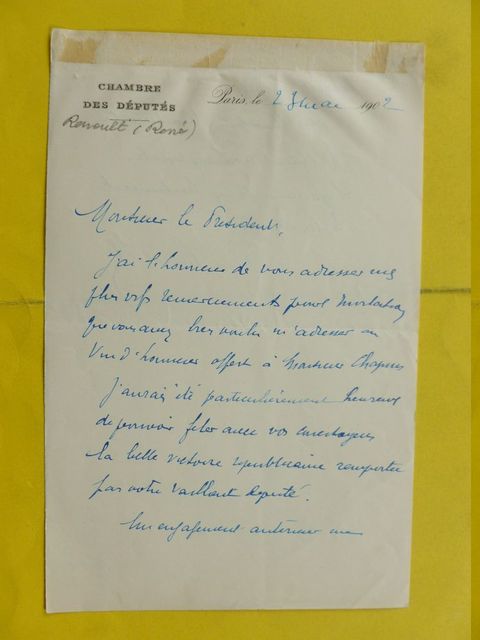 CHAMBRE
DES DÉPUTÉS
Paris, le 28 mai 1902
Renoult (René)
Monsieur le Président,
J'ai l'honneur de vous adresser mes
plus vifs remerciements pour l'invitation
que vous avez bien voulu m'adresser au
Vin d'honneur offert à Monsieur Chapuis
J'aurais été particulièrement heureux
de pouvoir fêter avec vos concitoyens
la belle victoire républicaine remportée
par votre vaillant député.
Un engagement antérieur me